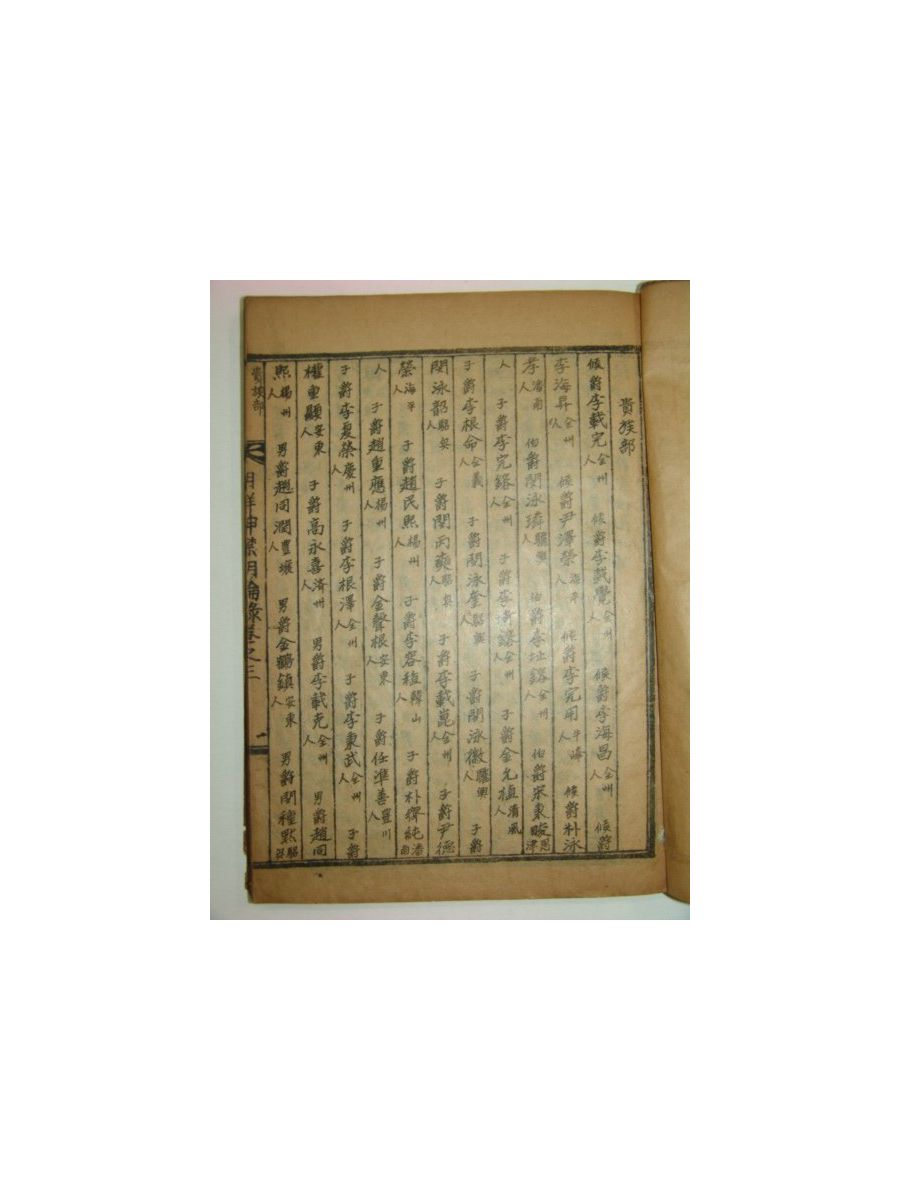 貴族部
侯爵李載完全州人 侯爵李載覺全州人 侯爵李海昌全州人 侯爵
李海昇全州人 侯爵尹澤榮海平人 侯爵李完用牛峰人 侯爵朴泳
孝潘南人 伯爵閔泳璘驪興人 伯爵李址鎔全州人 伯爵宋秉畯恩津
人 子爵李完鎔全州人 子爵李埼鎔全州人 子爵金允植清風人
子爵李根命全義人 子爵閔泳奎驪興人 子爵閔泳徽驪興人 子爵
閔泳韶驪興人 子爵閔丙奭驪興人 子爵李載崑全州人 子爵尹德
榮海平人 子爵趙民熙楊州人 子爵李容稙韓山人 子爵朴齊純潘南
人 子爵趙重應楊州人 子爵金聲根安東人 子爵任準善豐川人
子爵李夏榮慶州人 子爵李根澤全州人 子爵李秉武全州人 子爵
權重顯安東人 子爵高永喜濟州人 男爵李載克全州人 男爵趙同
熙楊州人 男爵趙同潤豐壤人 男爵金鶴鎮安東人 男爵閔種默驪興
貴族部
卷之三
一